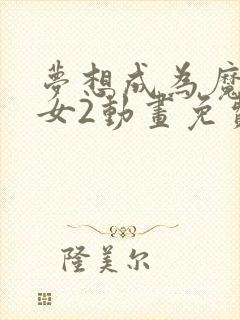 夢想成為魔
女2動畫免費
隆美尔